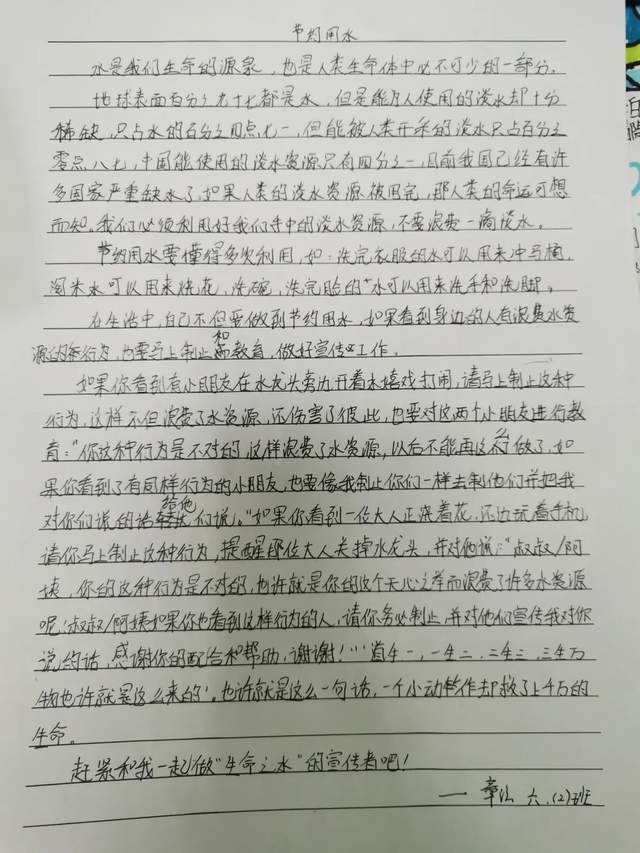 节约用水
水是我们生命的源泉，也是人类生命体中必不可少的一部分。
地球表面百分之九十七都是水，但是能为人使用的淡水却十分
稀缺，只占水的百分之四点七一，但能被人类开采的淡水只占百分之
零点八七，中国能使用的淡水资源只有四分之一，目前我国已经有许
多国家严重缺水了，如果人类的淡水资源被用完，那人类的命运可想
而知。我们必须利用好我们手中的淡水资源，不要浪费一滴淡水。
节约用水要懂得多次利用，如：洗完衣服的水可以用来冲马桶，
淘米水可以用来浇花，洗碗，洗完脸的水可以用来洗手和洗脚。
在生活中，自己不但要做到节约用水，如果看到身边的人有浪费水资
源的行为，也要马上制止和教育，做好宣传工作。
如果你看到有小朋友在水龙头旁边开着水嬉戏打闹，请马上制止这种
行为，这样不但浪费了水资源，还伤害了彼此，也要对这两个小朋友进行教
育："你这种行为是不对的，这样浪费了水资源，以后不能再这么做了，如
果你看到了有同样行为的小朋友，也要像我制止你们一样去制他们并把我
对你们说的话给他们说。"如果你看到一位大人正浇着花，还边玩着手机，
请你马上制止这种行为，提醒那位大人关掉水龙头，并对他说："叔叔/阿
姨，你的这种行为是不对的，也许就是你的这个无心之举而浪费了许多水资源
呢，叔叔/阿姨如果你也看到这样行为的人，请你务必制止，并对他们宣传我对你
说的话，感谢你的配合和帮助，谢谢！"'道生一，一生二，二生三，三生万
物也许就是这么来的'。也许就是这么一句话，一个小动作却救了上千万的
生命。
赶紧和我一起做"生命之水"的宣传者吧！
—— 六.(2)班